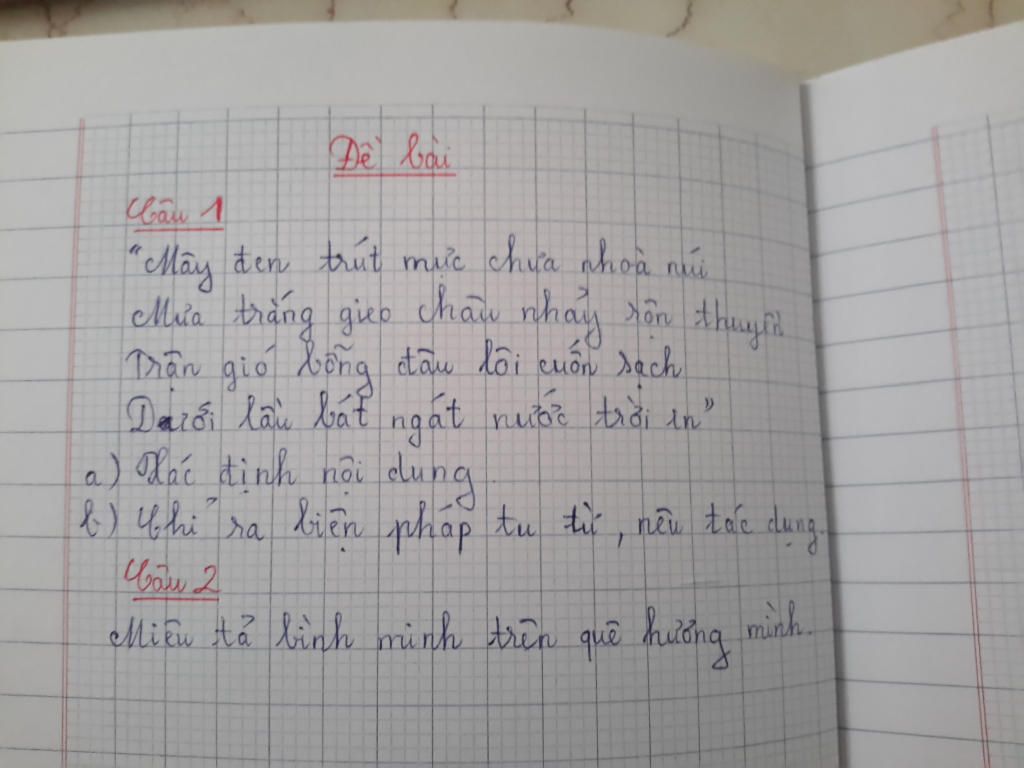 Đề bài
Câu 1
"Mây đen trút mực chưa nhoà núi
Mưa trắng gieo châu nhảy rộn thuyền
Trận gió bỗng đâu lôi cuốn sạch
Dưới lầu bát ngát nước trời in"
a) Xác định nội dung
b) Chỉ ra biện pháp tu từ, nêu tác dụng.
Câu 2
Miêu tả bình minh trên quê hương mình.